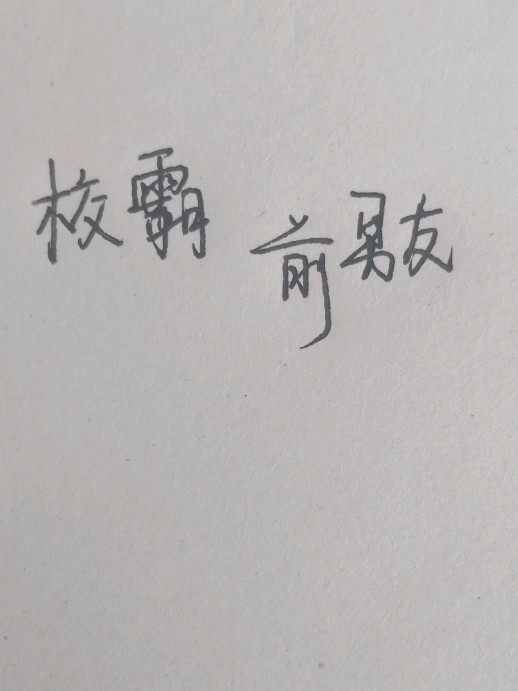 校霸 前男友